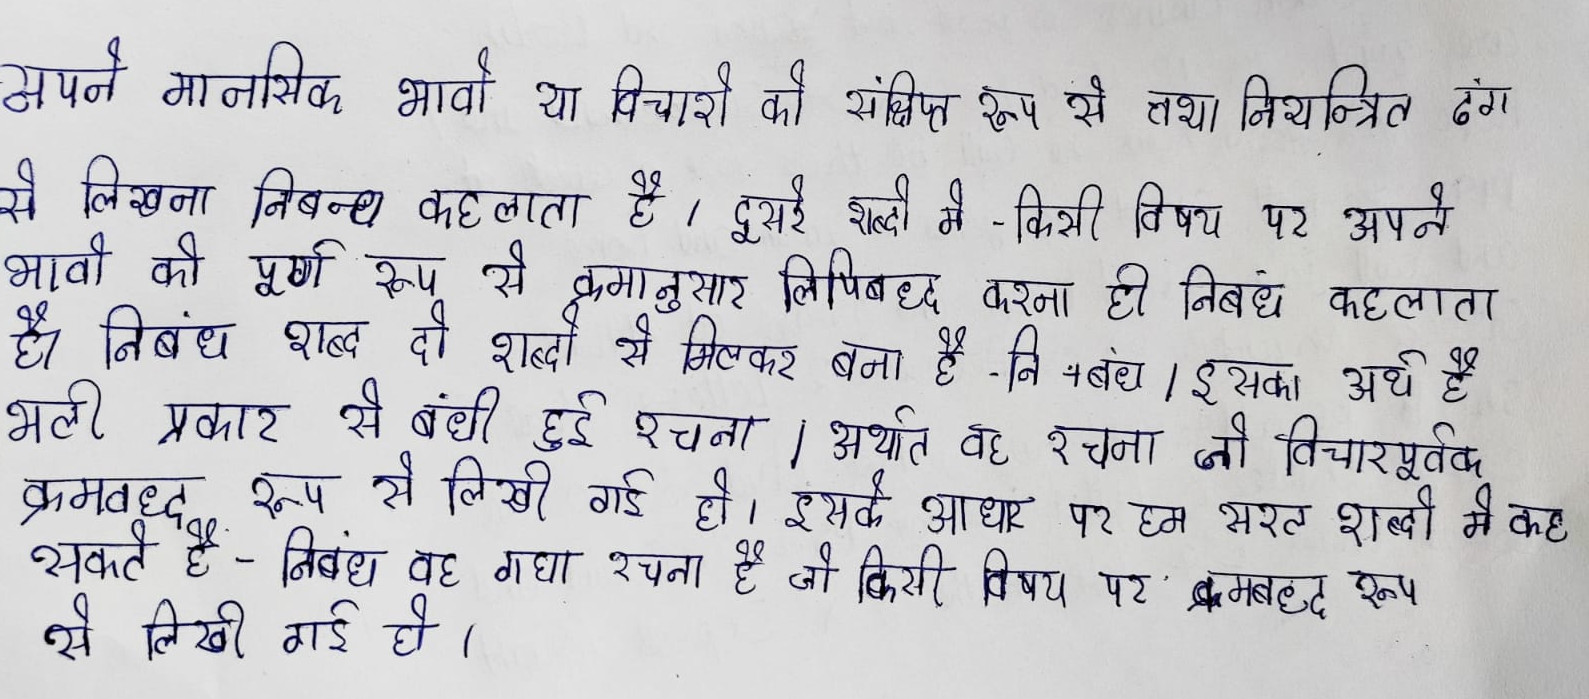 अपने मानसिक भावो या विचारो को संक्षिप्त रूप से तथा नियन्त्रित ढंग
से लिखना निबन्ध कहलाता है । दूसरे शब्दो मे - किसी विषय पर अपने
भावो को पूर्ण रूप से क्रमानुसार लिपिबध्द करना ही निबंध कहलाता
है। निबंध शब्द दो शब्दो से मिलकर बना है - नि + बंध । इसका अर्थ है
भली प्रकार से बंधी हुई रचना । अर्थात वह रचना जो विचारपूर्वक
क्रमवध्द रूप से लिखी गई हो। इसके आधार पर हम सरल शब्दो मे कह
सकते है - निबंध वह गद्य रचना है जो किसी विषय पर क्रमबध्द रूप
से लिखी गई हो ।